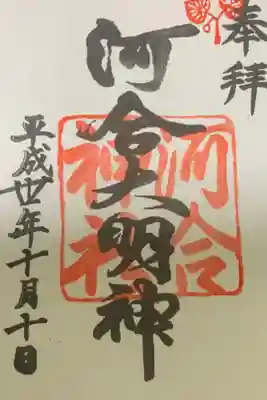 奉拝
河合大明神
河合
神社
平成廿年十月十日